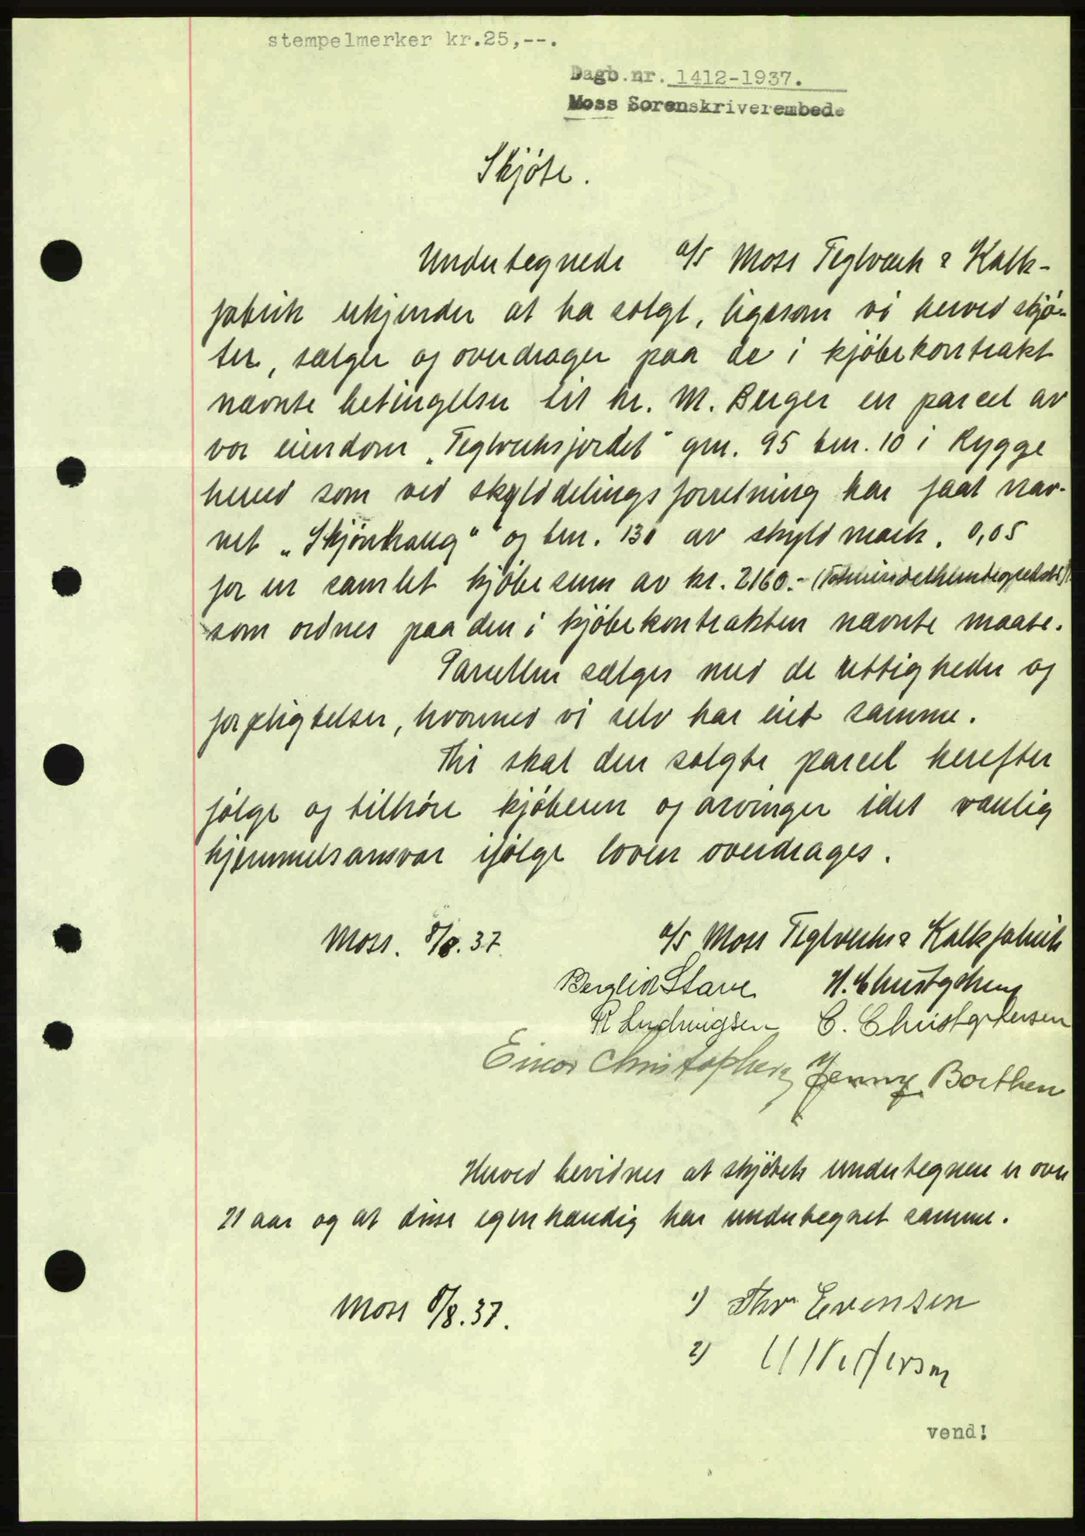 stempelmerker kr.25,--.
Dagb.nr. 1412-1937.
Moss Sorenskriverembede
Skjöte.
Undertegnede a/s Moss Teglverk & Kalk-
fabrik erkjender at ha solgt, ligesom vi herved skjö-
ter, sælger og overdrager paa de i kjöbekontrakt
nævnte betingelser til hr. M. Berger en parcel av
vor eiendom „Teglverksjordet" grn. 95 brn. 10 i Rygge
herred som ved skylddelingsforretning har faat nav-
net „Skjönhaug" og brn. 130 av skyld mark. 0,05
for en samlet kjöbesum av kr. 2160.-
som ordnes paa den i kjöbekontrakten nævnte maate.
Parcellen sælges med de rettigheder og
forpligtelser, hvormed vi selv har eiet samme.
Thi skal den solgte parcel herefter
følge og tilhöre kjöberen og arvinger idet vanlig
hjemmelsansvar ifølge loven overdrages.
Moss. 8/8.37. a/s Moss Teglverk & Kalkfabrik
Bergliot Stave H. Christophersen
R Ludvigsen C. Christophersen
Einar Christophersen Jenny Borthen
Herved bevidnes at skjötets undertegnere er over
21 aar og at disse egenhændig har undertegnet samme.
Moss 8/8.37. 1) Thv Evensen
2)
vend!